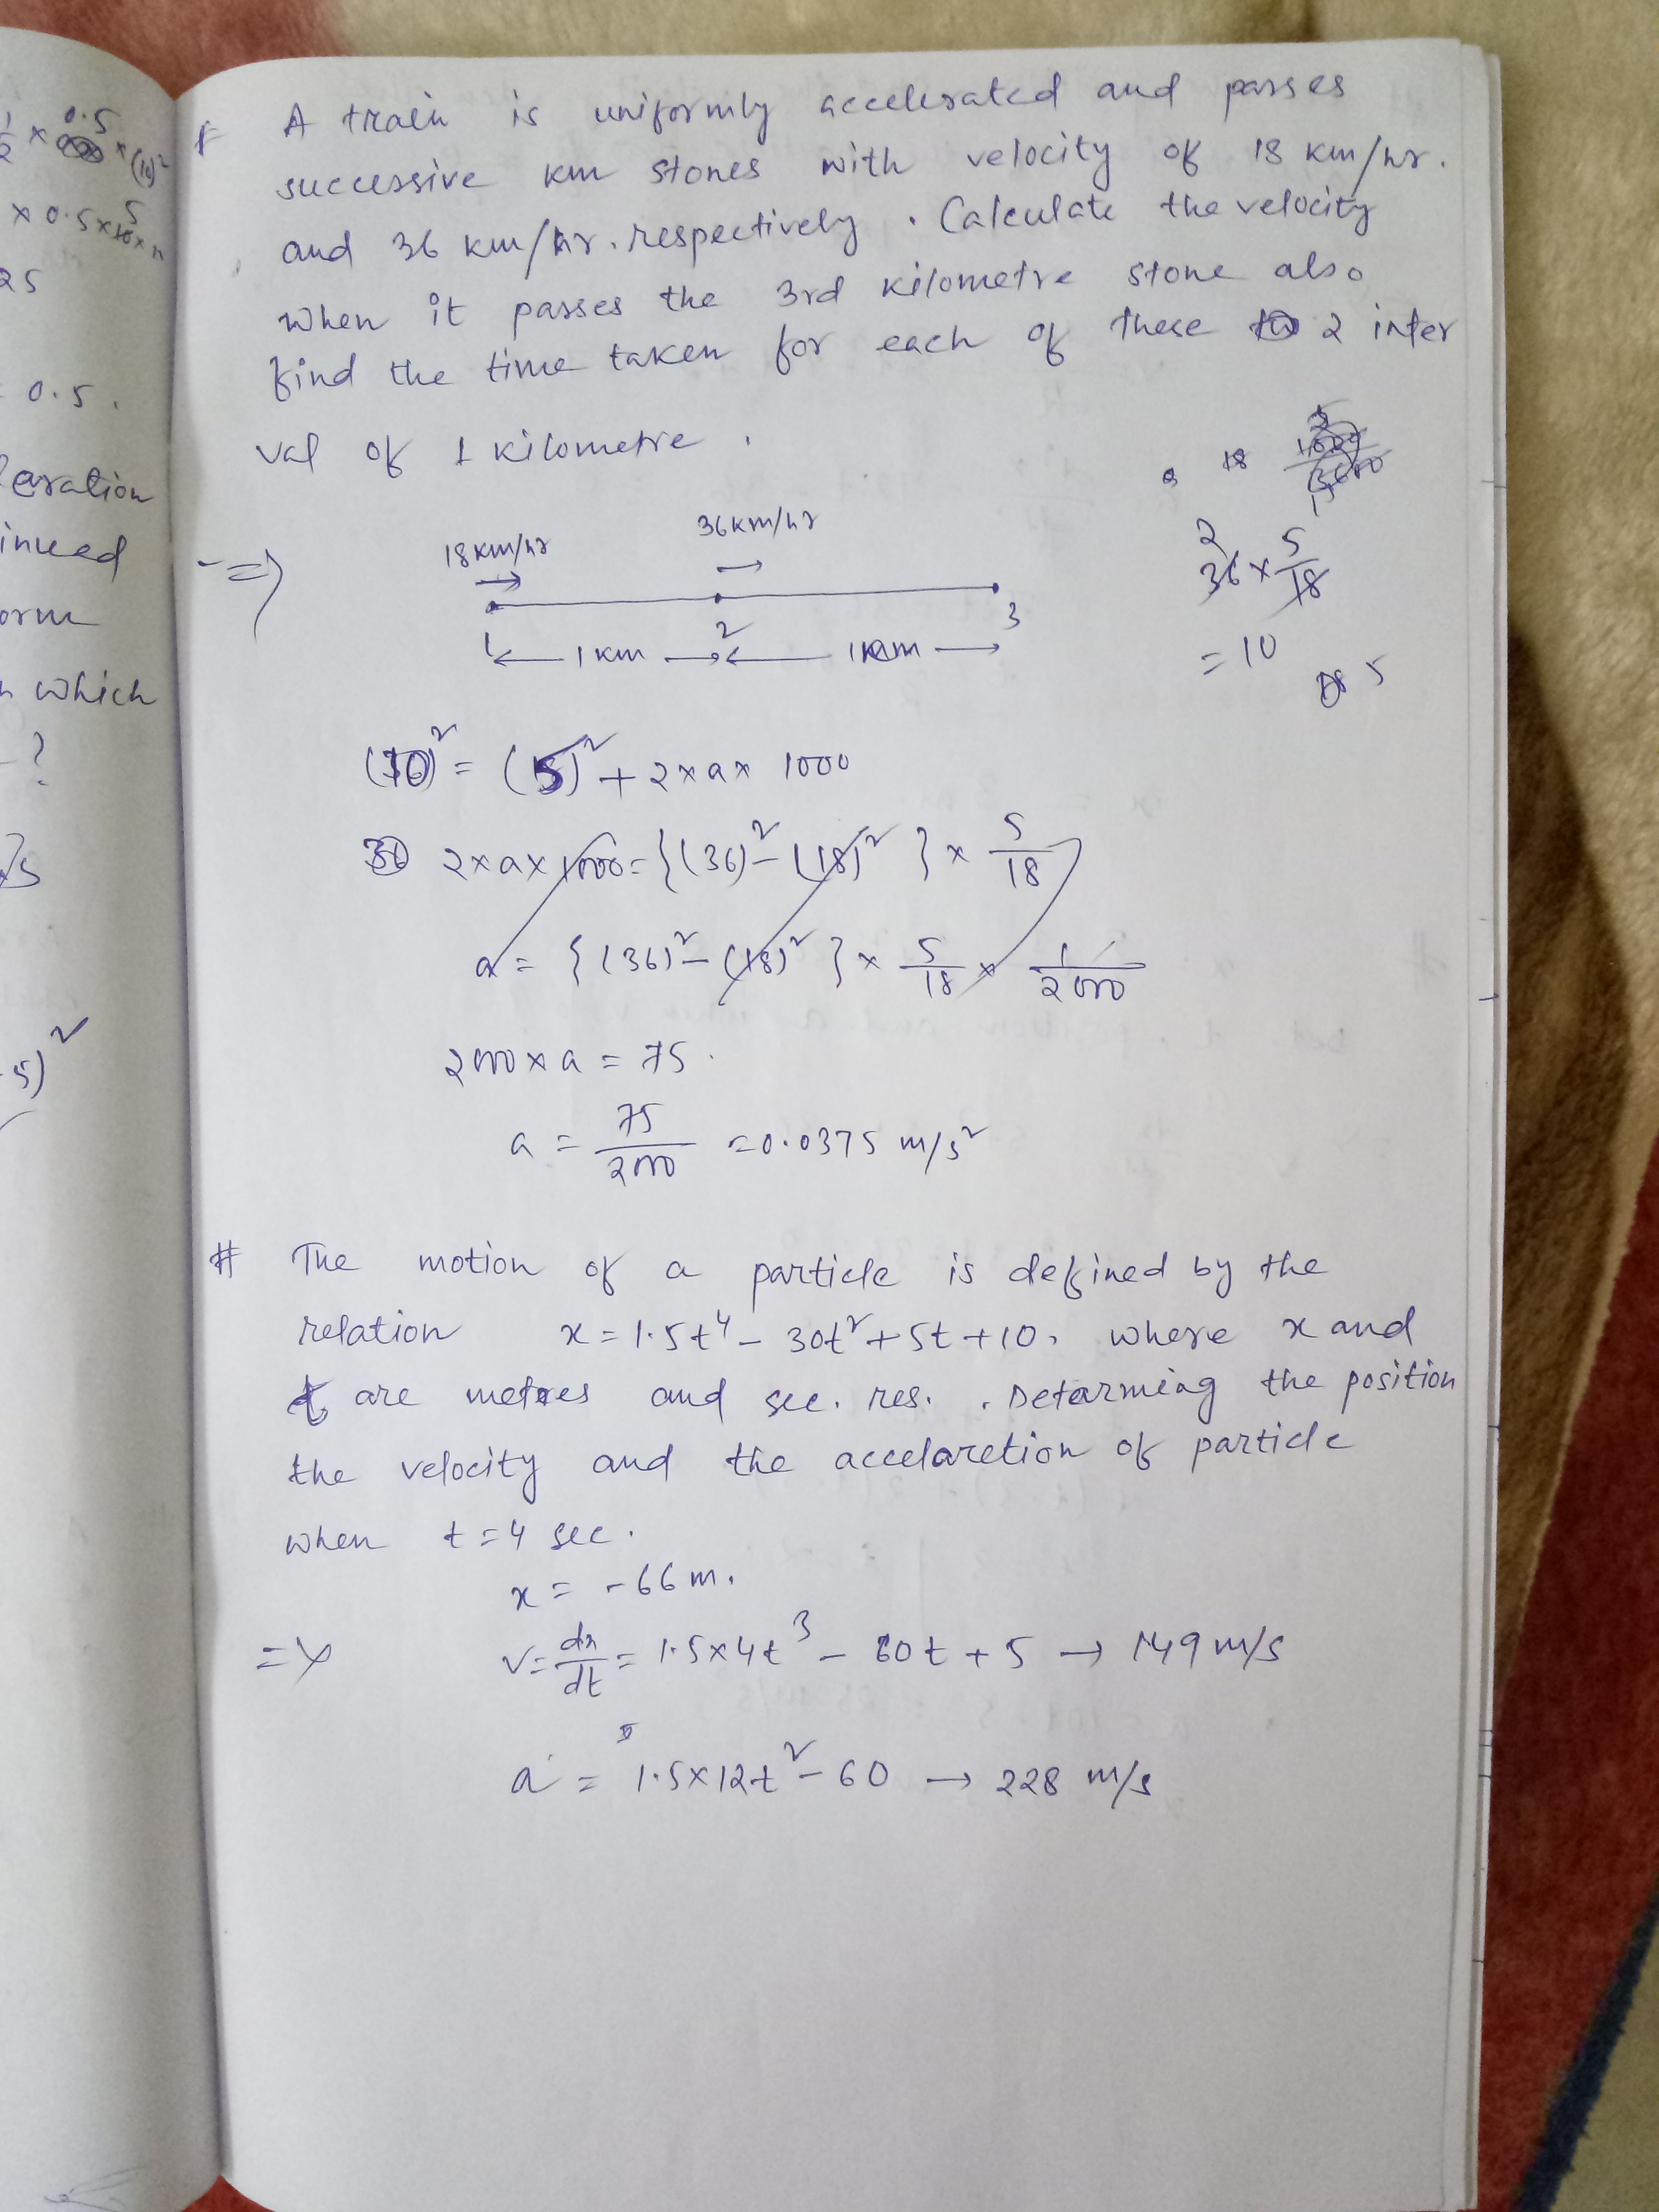 1/2 × 0.5 × (10)²
× 0.5 × 10 × n
5
25
0.5.
eration
inued
orm
which
?
5)²
A train is uniformly accelerated and passes
successive km stones with velocity of 18 km/hr.
and 36 km/hr. respectively. Calculate the velocity
when it passes the 3rd kilometre stone also
find the time taken for each of these 2 inter
val of 1 kilometre.
18
36 × 5/18
2
= 10
5
18 km/hr 36 km/hr
1 2 3
1 km 1 km
(10)² = (5)² + 2 × a × 1000
2 × a × 1000 = {(36)² - (18)²} × 5/18
a = {(36)² - (18)²} × 5/18 × 1/2000
2000 × a = 75.
a = 75/2000 = 0.0375 m/s²
# The motion of a particle is defined by the
relation x = 1.5t⁴ - 30t² + 5t + 10, where x and
t are metres and sec. res. . Determing the position
the velocity and the accelaretion of particle
when t = 4 sec.
x = -66 m.
=> v = dx/dt = 1.5 × 4t³ - 60t + 5 → 149 m/s
a = 1.5 × 12t² - 60 → 228 m/s